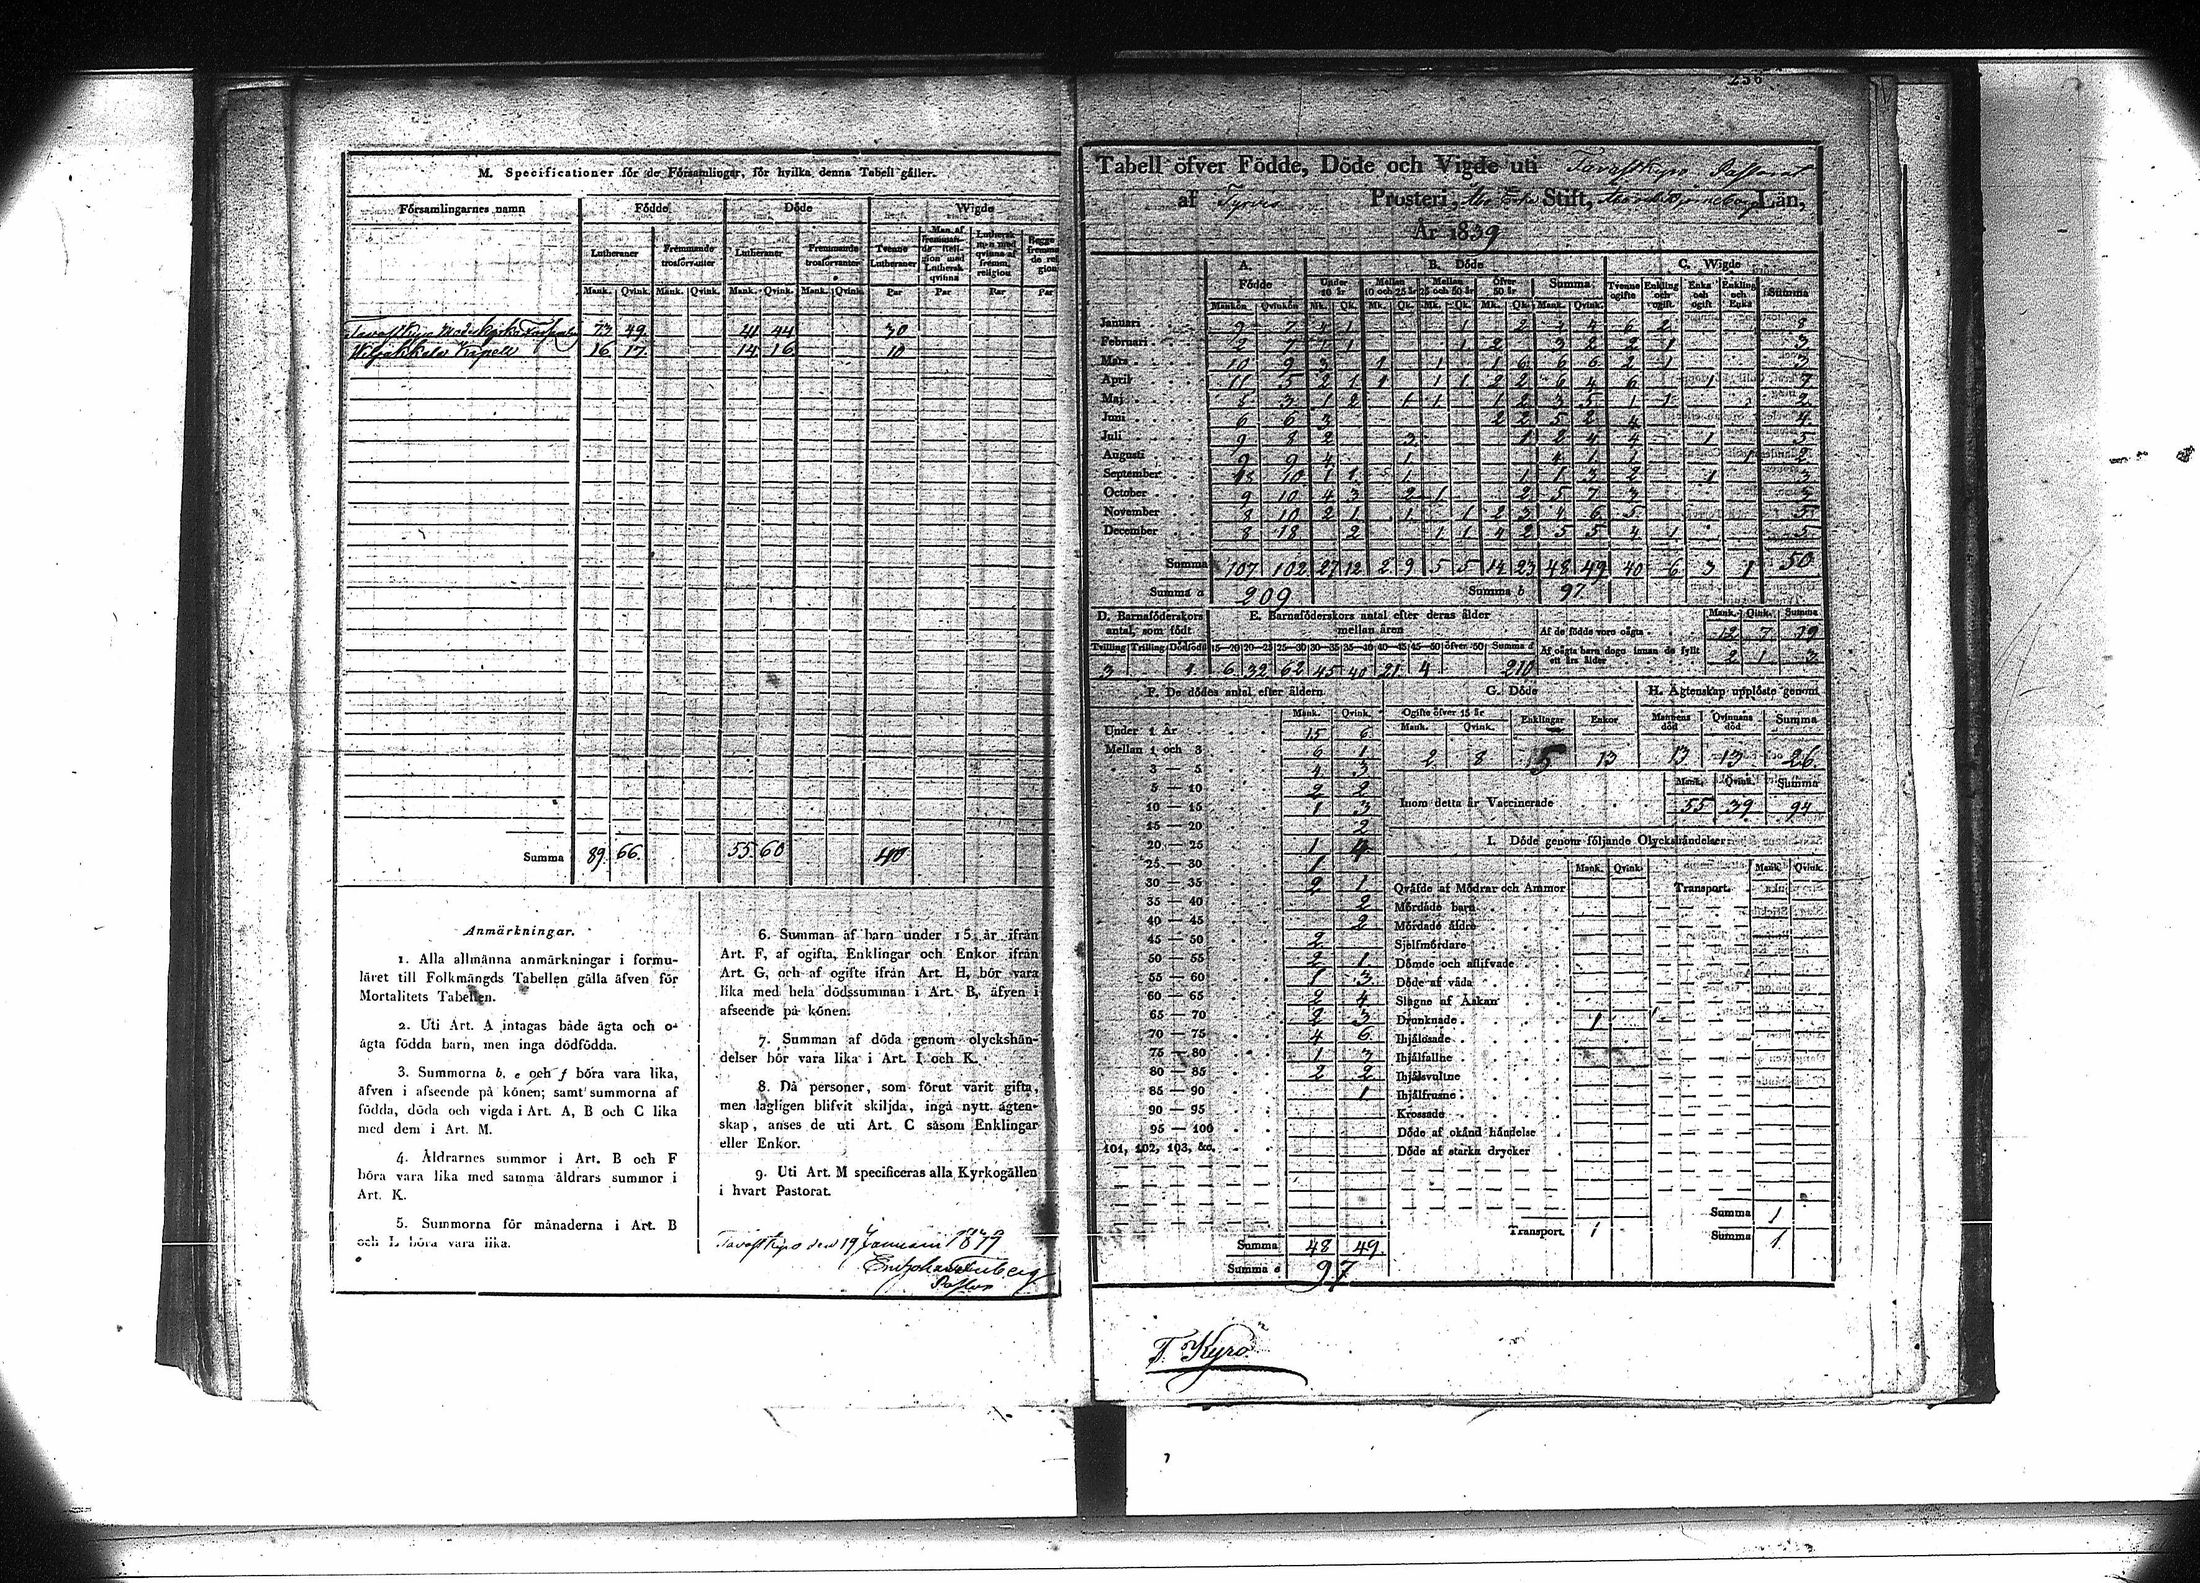 M. Specificationer för de Församlingar, för hvilka denna Tabell gäller.
Församlingarnes namn Födde Döde Wigde
Lutheraner Fremmande trosförvanter Lutheraner Fremmande trosförvanter Tvenne Lutheraner Man af fremmande religion med Luthersk qvinna Luthersk man med qvinna af fremm. religion
Mank. Qvink. Mank. Qvink. Mank. Qvink. Mank. Qvink. Par Par Par Par
Tavastkyro Moderkyrko 73 49 41 44 30
Kapell 16 17 14 16 10
Summa 89 66 55 60 40
Anmärkningar.
1. Alla allmänna anmärkningar i formu-
läret till Folkmängds Tabellen gälla äfven för
Mortalitets Tabellen.
2. Uti Art. A intagas både ägta och o-
ägta födda barn, men inga dödfödda.
3. Summorna b, e och f böra vara lika,
äfven i afseende på könen; samt summorna af
födda, döda och vigda i Art. A, B och C lika
med dem i Art. M.
4. Åldrarnes summor i Art. B och F
böra vara lika med samma åldrars summor i
Art. K.
5. Summorna för månaderna i Art. B
och L böra vara lika.
6. Summan af barn under 15 år ifrån
Art. F, af ogifta, Enklingar och Enkor ifrån
Art. G, och af ogifte ifrån Art. H, bör vara
lika med hela dödssumman i Art. B, äfven i
afseende på könen.
7. Summan af döda genom olyckshän-
delser bör vara lika i Art. I och K.
8. Då personer, som förut varit gifta,
men lagligen blifvit skiljda, ingå nytt ägten-
skap, anses de uti Art. C såsom Enklingar
eller Enkor.
9. Uti Art. M specificeras alla Kyrkogällen
i hvart Pastorat.
Tavastkyro den 19 Januari
Pastor
Tabell öfver Födde, Döde och Vigde uti Tavastkyro Pastorat
af Tyrvis Prosteri, Åbo Stift, Åbo och Björneborgs Län,
År 1839
A. Födde B. Döde C. Wigde
Mankön Qvinkön Under 10 år Mellan 10 och 25 år Mellan 25 och 50 år Öfver 50 år Summa Tvenne ogifte Enkling och ogift Enka och ogift Enkling och Enka Summa
Januari 9 7 4 1 1 2 4 4 6 2 8
Februari 2 7 1 1 1 2 3 2 2 1 3
Mars 10 9 3 1 1 1 6 6 6 2 1 3
April 11 5 2 1 1 1 1 2 2 6 4 6 1 7
Maj 8 3 1 2 1 1 1 2 3 5 1 1 2
Juni 6 6 3 2 2 5 2 4 4
Juli 9 8 2 3 1 2 4 4 1 5
Augusti 9 9 4 1 4 1 1 1 2
September 18 10 1 1 1 1 1 3 2 1 3
October 9 10 4 3 2 1 2 5 7 3 3
November 8 10 2 1 1 1 2 3 4 6 5 5
December 8 18 2 1 1 4 2 5 5 4 1 5
Summa 107 102 27 12 2 9 5 5 14 23 48 49 40 6 3 1 50
Summa a 209 Summa b 97
D. Barnaföderskors antal, som födt E. Barnaföderskors antal efter deras ålder mellan åren Mank. Qink. Summa
Af de födde voro oägta 12 7 19
Tvilling Trilling Dödfödd 15—20 20—25 25—30 30—35 35—40 40—45 45—50 öfver 50 Summa d
Af oägta barn dogo innan de fyllt ett års ålder 2 1 3
3 1 6 32 62 45 40 21 4 210
F. De dödes antal efter åldern G. Döde H. Ägtenskap upplöste genom
Mank. Qvink. Ogifte öfver 15 år Mank. Qvink. Enklingar Enkor Mannens död Qvinnans död Summa
Under 1 År 15 6
2 8 5 13 13 13 26
Mellan 1 och 3 6 1
3 — 5 4 3
5 — 10 2 2
10 — 15 1 3
15 — 20 2
20 — 25 1 4
25 — 30 1
30 — 35 2 1
35 — 40 2
40 — 45 2
45 — 50 2
50 — 55 2 1
55 — 60 1 3
60 — 65 2 4
65 — 70 2 3
70 — 75 4 6
75 — 80 1 3
80 — 85 2 2
85 — 90 1
90 — 95
95 — 100
101, 102, 103, &c.
Summa 48 49
Summa e 97
Mank. Qvink. Summa
Inom detta år Vaccinerade 55 39 94
I. Döde genom följande Olyckshändelser
Mank. Qvink. Mank. Qvink.
Qväfde af Mödrar och Ammor Transport.
Mördade barn
Mördade äldre
Sjelfmördare
Dömde och aflifvade
Döde af våda
Slagne af Åskan
Drunknade 1
Ihjälosade
Ihjälfallne
Ihjälsvultne
Ihjälfrusne
Krossade
Döde af okänd händelse
Döde af starka drycker
Summa 1
Transport. 1 Summa 1
T. Kyro